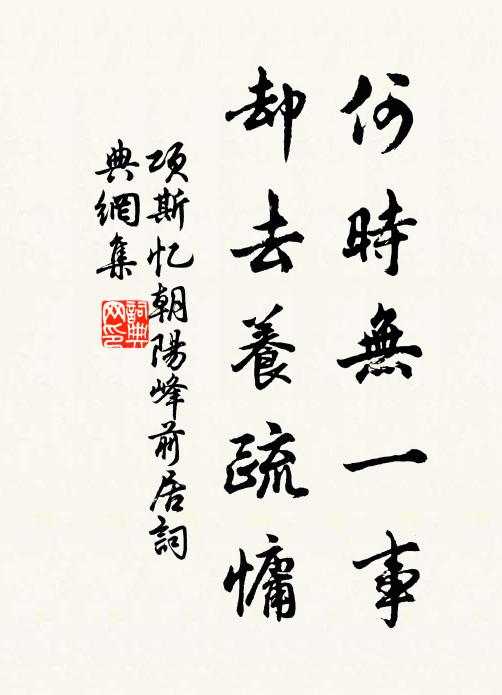 何時無一事
却去養疏慵
項斯忆朝陽峰前居詞
典網集
詞典
网印